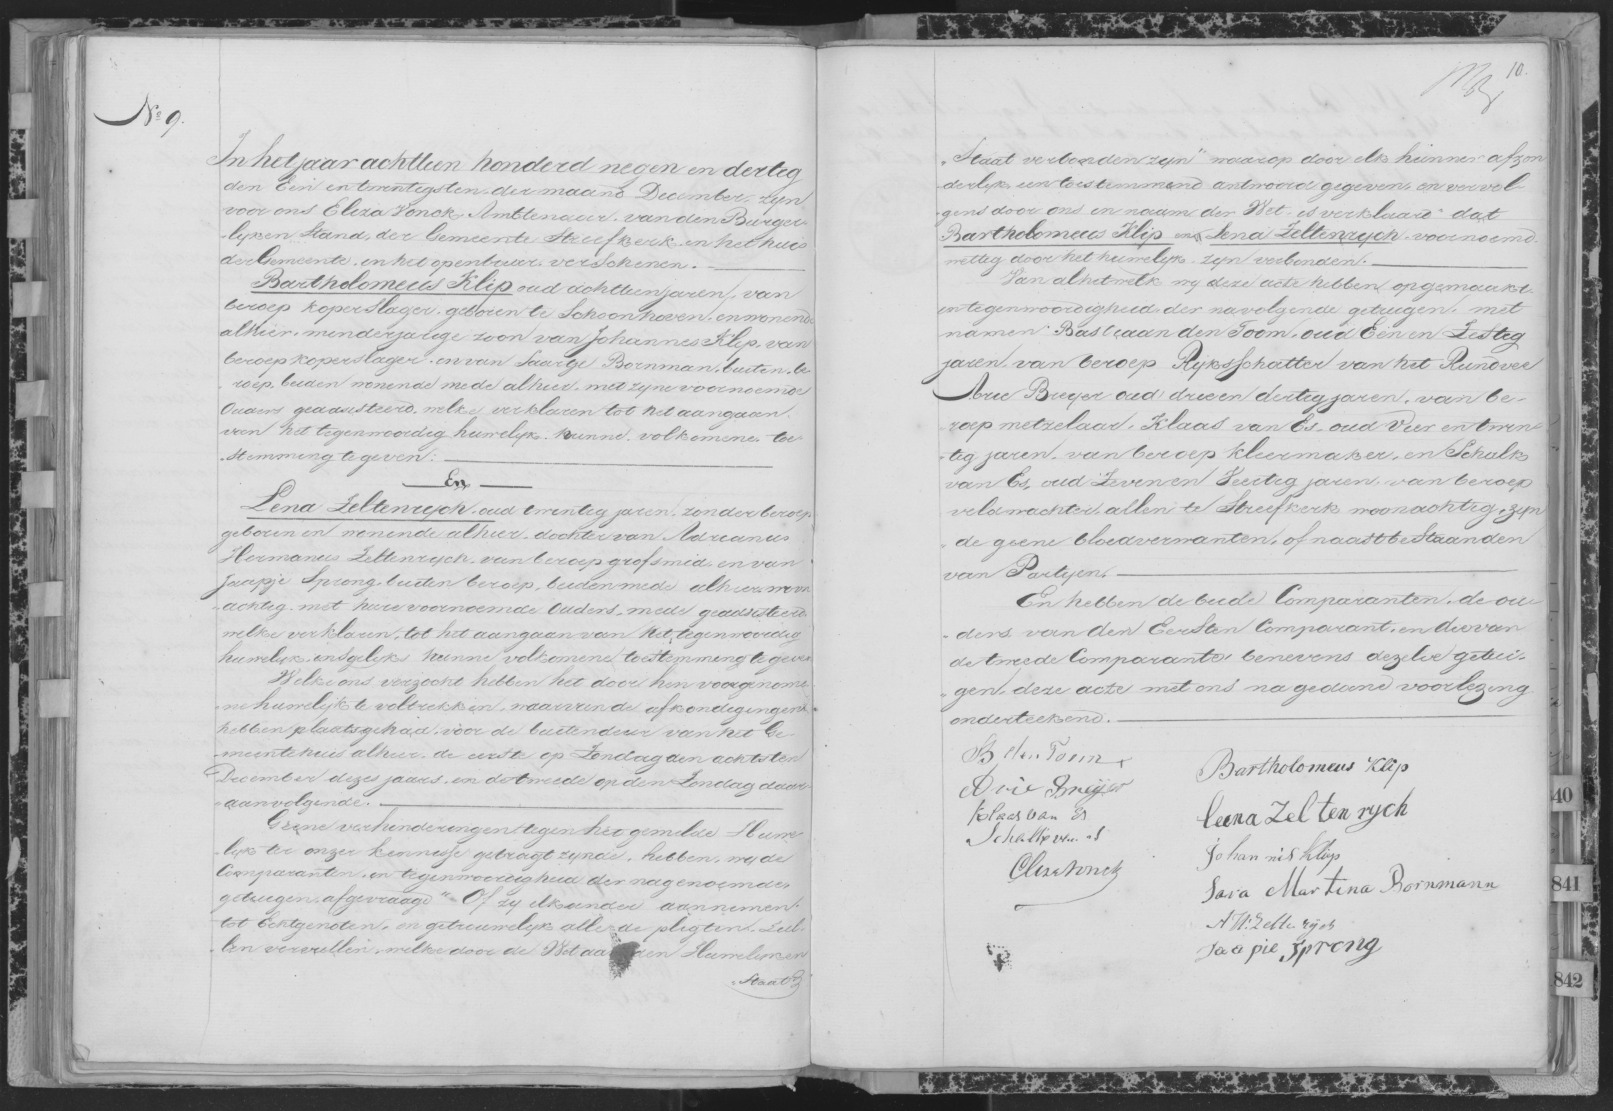 No 9.
In het jaar achttien honderd negen en dertig
den Een en twintigsten der maand December, zyn
voor ons Eliza Vonck, Ambtenaar van den Burger-
-lyken Stand, der Gemeente Streefkerk in het huis
der Gemeente, in het openbaar verschenen.
Bartholomeus Klip oud achttien jaren, van
beroep koperslager, geboren te Schoonhoven, en wonende
alhier, minderjarige zoon van Johannes Klip, van
beroep koperslager, en van Saartje Bornman, buiten be-
roep, beiden wonende mede alhier, met zyne voornoemde
Ouders geadsisteerd, welke verklaren tot het aangaan
van het tegenwoordig huwelyk, hunne volkomene toe-
-stemming te geven:
En
Lena Zeltenrych, oud twintig jaren, zonder beroep
geboren en wonende alhier, dochter van Adrianus
Hermanus Zeltenrych, van beroep grofsmid, en van
Jaapje Sprong, buiten beroep, beiden mede alhier woon
-achtig, met hare voornoemde Ouders, mede geadsisteerd
welke verklaren, tot het aangaan van het tegenwoordig
huwelyk, insgelyks hunne volkomene toestemming te geven
Welke ons verzocht hebben het door hen voorgenome-
-ne huwelijk te voltrekken, waarvan de afkondigingen
hebben plaats gehad, voor de buitendeur van het Ge-
meentehuis alhier, de eerste op Zondag den achtsten
December dezes jaars, en de tweede op den Zondag daar-
-aanvolgende.
Geene verhinderingen tegen het gemelde Huwe-
-lyk ter onzer kennisse gebragt zynde, hebben, wy de
Comparanten, in tegenwoordigheid der nagenoemde
getuigen, afgevraagd "Of zy elkander aannemen
tot Echtgenoten, en getrouwelyk alle de pligten zul-
-len vervullen, welke door de Wet aan den Huwelyken
Staat
10.
"Staat verbonden zyn" waarop door elk hunner afzon
derlyk een toestemmend antwoord gegeven, en vervol-
-gens door ons in naam der Wet is verklaard dat
Bartholomeus Klip en Lena Zeltenrych, voornoemd
wettig door het huwelyk zyn verbonden.
Van al hetwelk wy deze acte hebben opgemaakt
in tegenwoordigheid der navolgende getuigen, met
namen: Bastiaan den Toom, oud Een en Zestig
jaren, van beroep Ryksschatter van het Rundvee
Arie Breyer oud drie en dertig jaren, van be-
roep metzelaar, Klaas van Es, oud Vier en twin-
-tig jaren, van beroep kleermaker, en Schalk
van Es, oud Zeven en Veertig jaren, van beroep
veldwachter, allen te Streefkerk woonachtig, zyn-
-de geene bloedverwanten, of naastbestaanden
van Partyen.
En hebben de beide Comparanten, de ou-
-ders van den Eersten Comparant, en die van
de tweede Comparante, benevens dezelve getui-
-gen, deze acte met ons na gedane voorlezing
onderteekend.
B den Toom
Arie Breijer
Klaas van Es
Schalk van Es
Eliza Vonck
Bartholomeus Klip
Leena Zeltenrych
Johannis Klip
Sara Martina Bornmann
A H Zeltenrijch
Jaapie Sprong
40
841
842